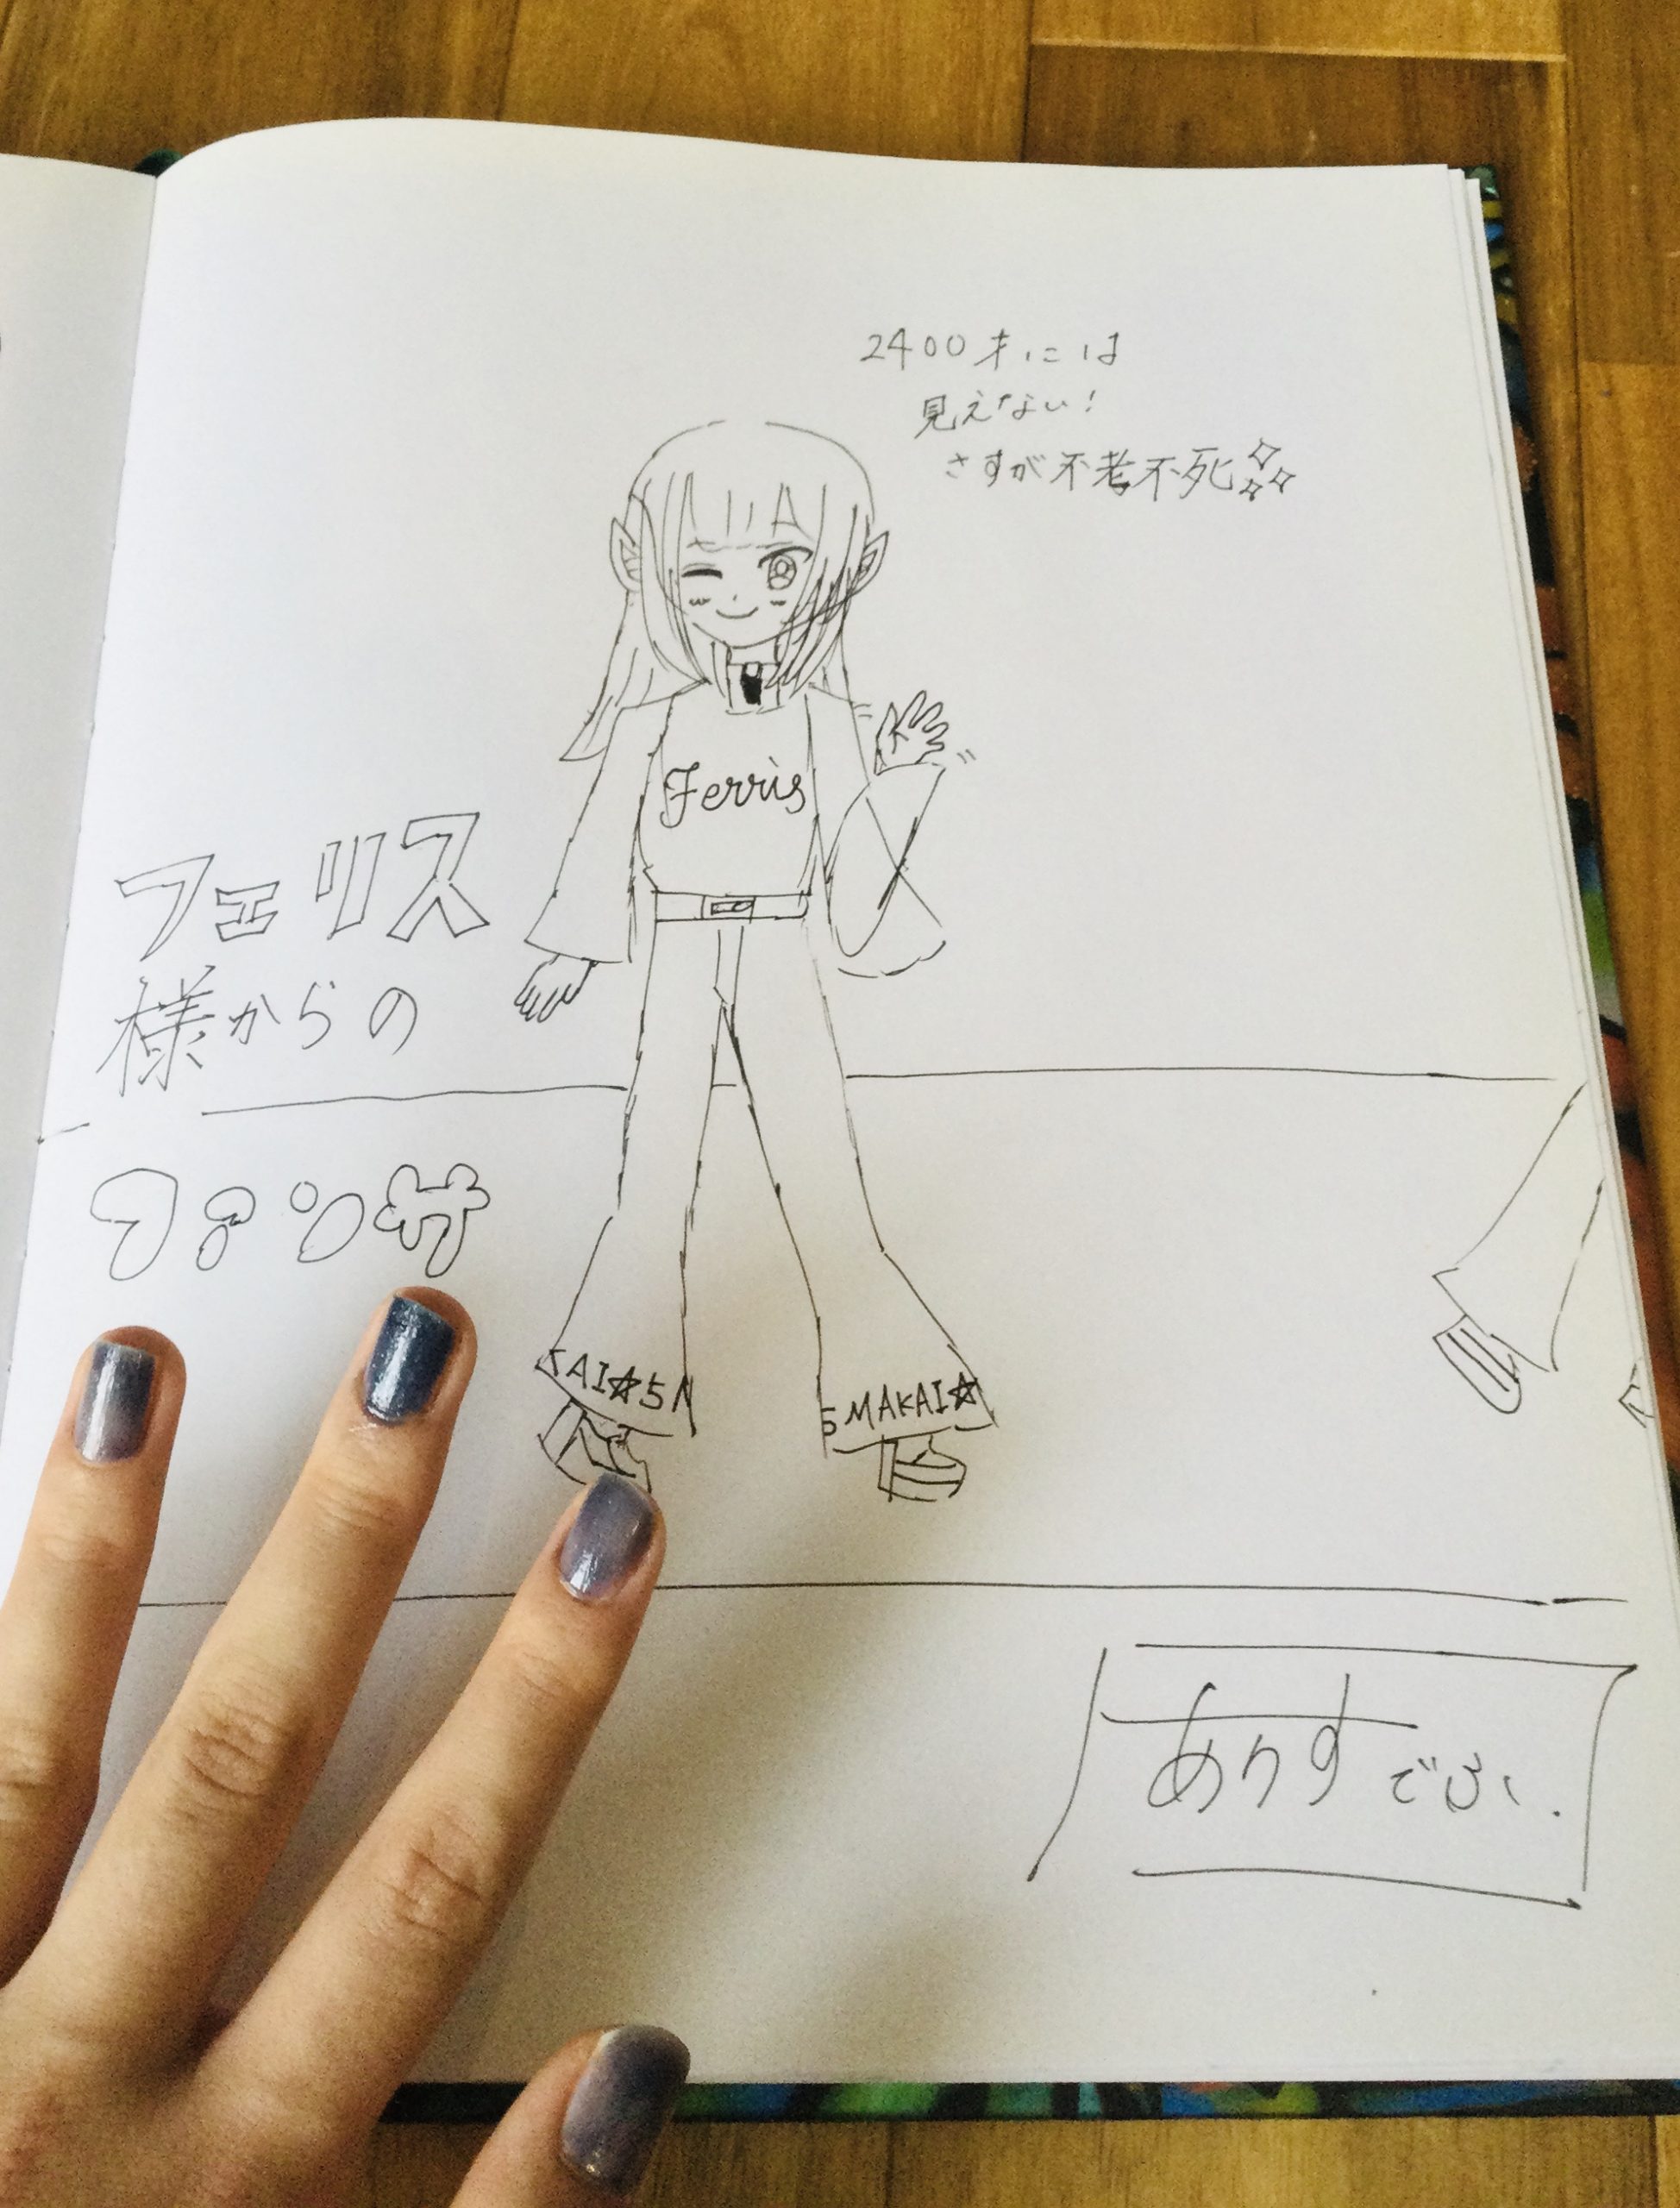 2400才には
見えない!
さすが不考不死
Ferris
フェリス
様からの
ファンサ
KAI☆5M
5MAKAI☆
ありす